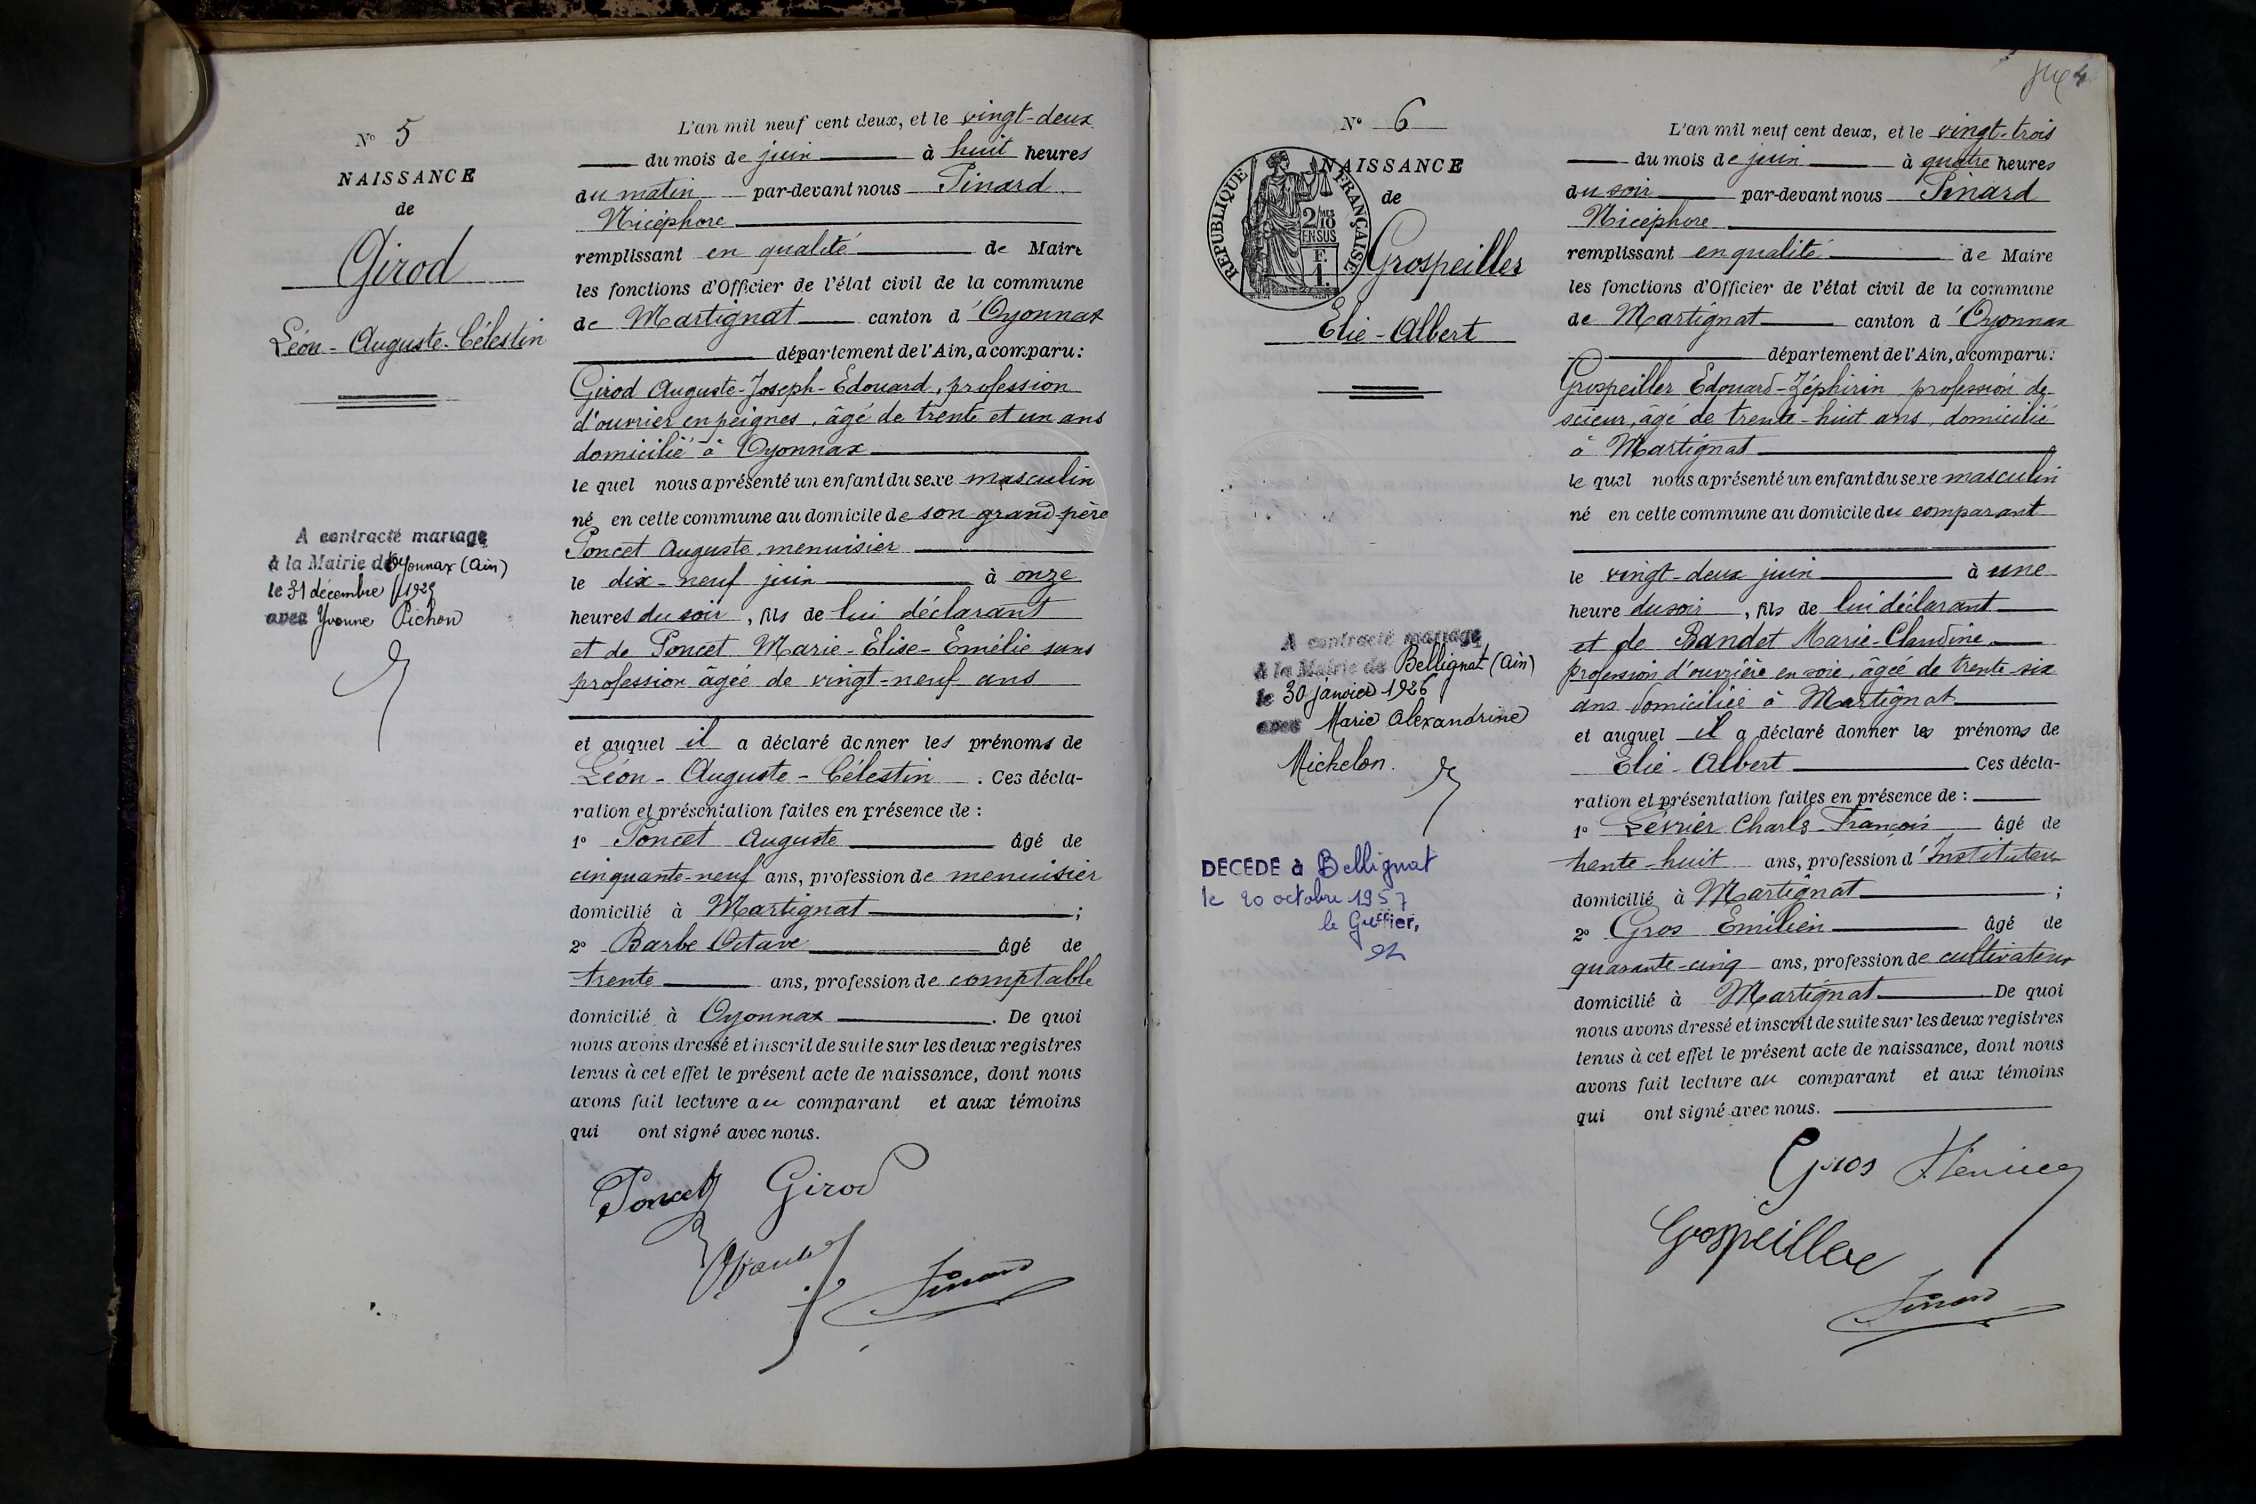 N° 5
NAISSANCE
de
Girod
Léon - Auguste - Célestin
A contracté mariage
à la Mairie de Oyonnax (Ain)
le 31 décembre 1929
avec Yvonne Pichon
L'an mil neuf cent deux, et le vingt-deux
du mois de juin à huit heures
du matin par-devant nous Pinard
Nicéphore
remplissant en qualité de Maire
les fonctions d'Officier de l'état civil de la commune
de Martignat canton d'Oyonnax
département de l'Ain, a comparu :
Girod Auguste-Joseph-Edouard, profession
d'ouvrier en peignes, âgé de trente et un ans
domicilié à Oyonnax
lequel nous a présenté un enfant du sexe masculin
né en cette commune au domicile de son grand-père
Poncet Auguste, menuisier
le dix-neuf juin à onze
heures du soir, fils de lui déclarant
et de Poncet Marie-Elise-Emélie sans
profession âgée de vingt-neuf ans
et auquel il a déclaré donner les prénoms de
Léon - Auguste - Célestin. Ces décla-
ration et présentation faites en présence de :
1° Poncet Auguste âgé de
cinquante-neuf ans, profession de menuisier
domicilié à Martignat ;
2° Barbe Octave âgé de
trente ans, profession de comptable
domicilié à Oyonnax. De quoi
nous avons dressé et inscrit de suite sur les deux registres
tenus à cet effet le présent acte de naissance, dont nous
avons fait lecture au comparant et aux témoins
qui ont signé avec nous.
Poncet Girod
Pinard
4
N° 6
NAISSANCE
de
REPUBLIQUE FRANÇAISE
2/10MES
EN SUS
F.
1.
Grospeiller
Elie - Albert
A contracté mariage
à la Mairie de Bellignat (Ain)
le 30 janvier 1926
avec Marie Alexandrine
Michelon.
DÉCÉDÉ à Bellignat
le 20 octobre 1957
le Greffier,
L'an mil neuf cent deux, et le vingt-trois
du mois de juin à quatre heures
du soir par-devant nous Pinard
Nicéphore
remplissant en qualité de Maire
les fonctions d'Officier de l'état civil de la commune
de Martignat canton d'Oyonnax
département de l'Ain, a comparu :
Grospeiller Edouard-Zéphirin profession de
scieur, âgé de trente-huit ans, domicilié
à Martignat
lequel nous a présenté un enfant du sexe masculin
né en cette commune au domicile du comparant
le vingt-deux juin à une
heure du soir, fils de lui déclarant
et de Bandet Marie-Claudine
profession d'ouvrière en soie, âgée de trente-six
ans domiciliée à Martignat
et auquel il a déclaré donner les prénoms de
Elie - Albert Ces décla-
ration et présentation faites en présence de :
1° Février Charles François âgé de
trente-huit ans, profession d'Instituteur
domicilié à Martignat ;
2° Gros Emilien âgé de
quarante-cinq ans, profession de cultivateur
domicilié à Martignat De quoi
nous avons dressé et inscrit de suite sur les deux registres
tenus à cet effet le présent acte de naissance, dont nous
avons fait lecture au comparant et aux témoins
qui ont signé avec nous.
Gros
Grospeiller
Pinard